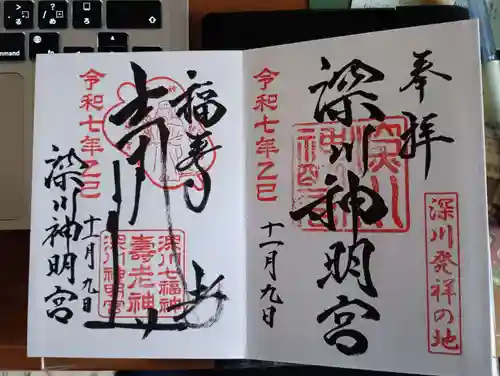 奉拝
深川発祥の地
深川神明宮
令和七年乙巳
十一月九日
福寿
令和七年乙巳
深川七福神
壽老神
深川神明宮
十一月九日
深川神明宮